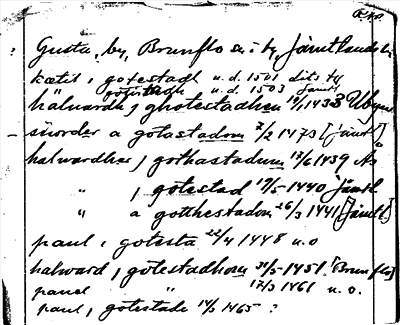 Gusta, by, Brunflo sn i ty, Jämtlands
kætil i gotestadh u.d. 1501 dits ty
gotestadh u.d. 1503 Jämt
halwardh j ghotestadhen 19/1 1433
sivorder a gotastadom 2/2 1473 [Jämtl]
halwardher j gothastadum 17/6 1439 Ås
" j gotestad 19/5 1440 Jämtl
" a gotthestadom 26/3 1441 [Jämtl]
paul i gotesta 22/4 1448 u.o
halward j gotestadhom 31/5 1451 [Brunflo]
pauel " 17/3 1461 u.o.
paul, j gotestade 14/3 1465 ?